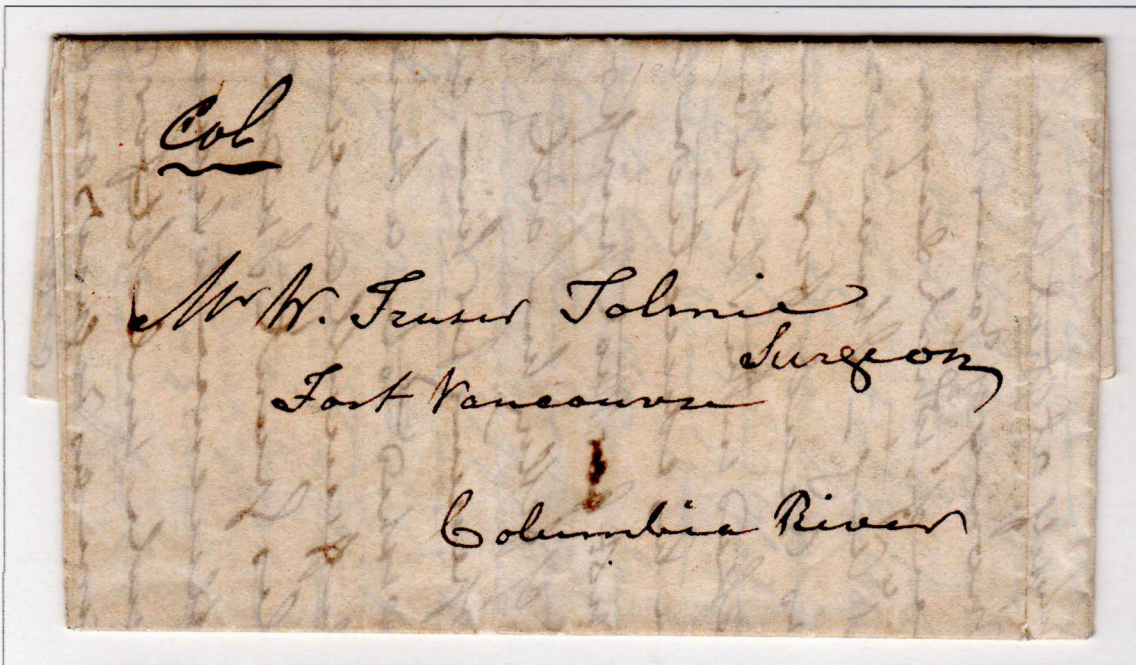 Col
Mr W. Fraser Tolmie
Surgeon
Fort Vancouver
Columbia River